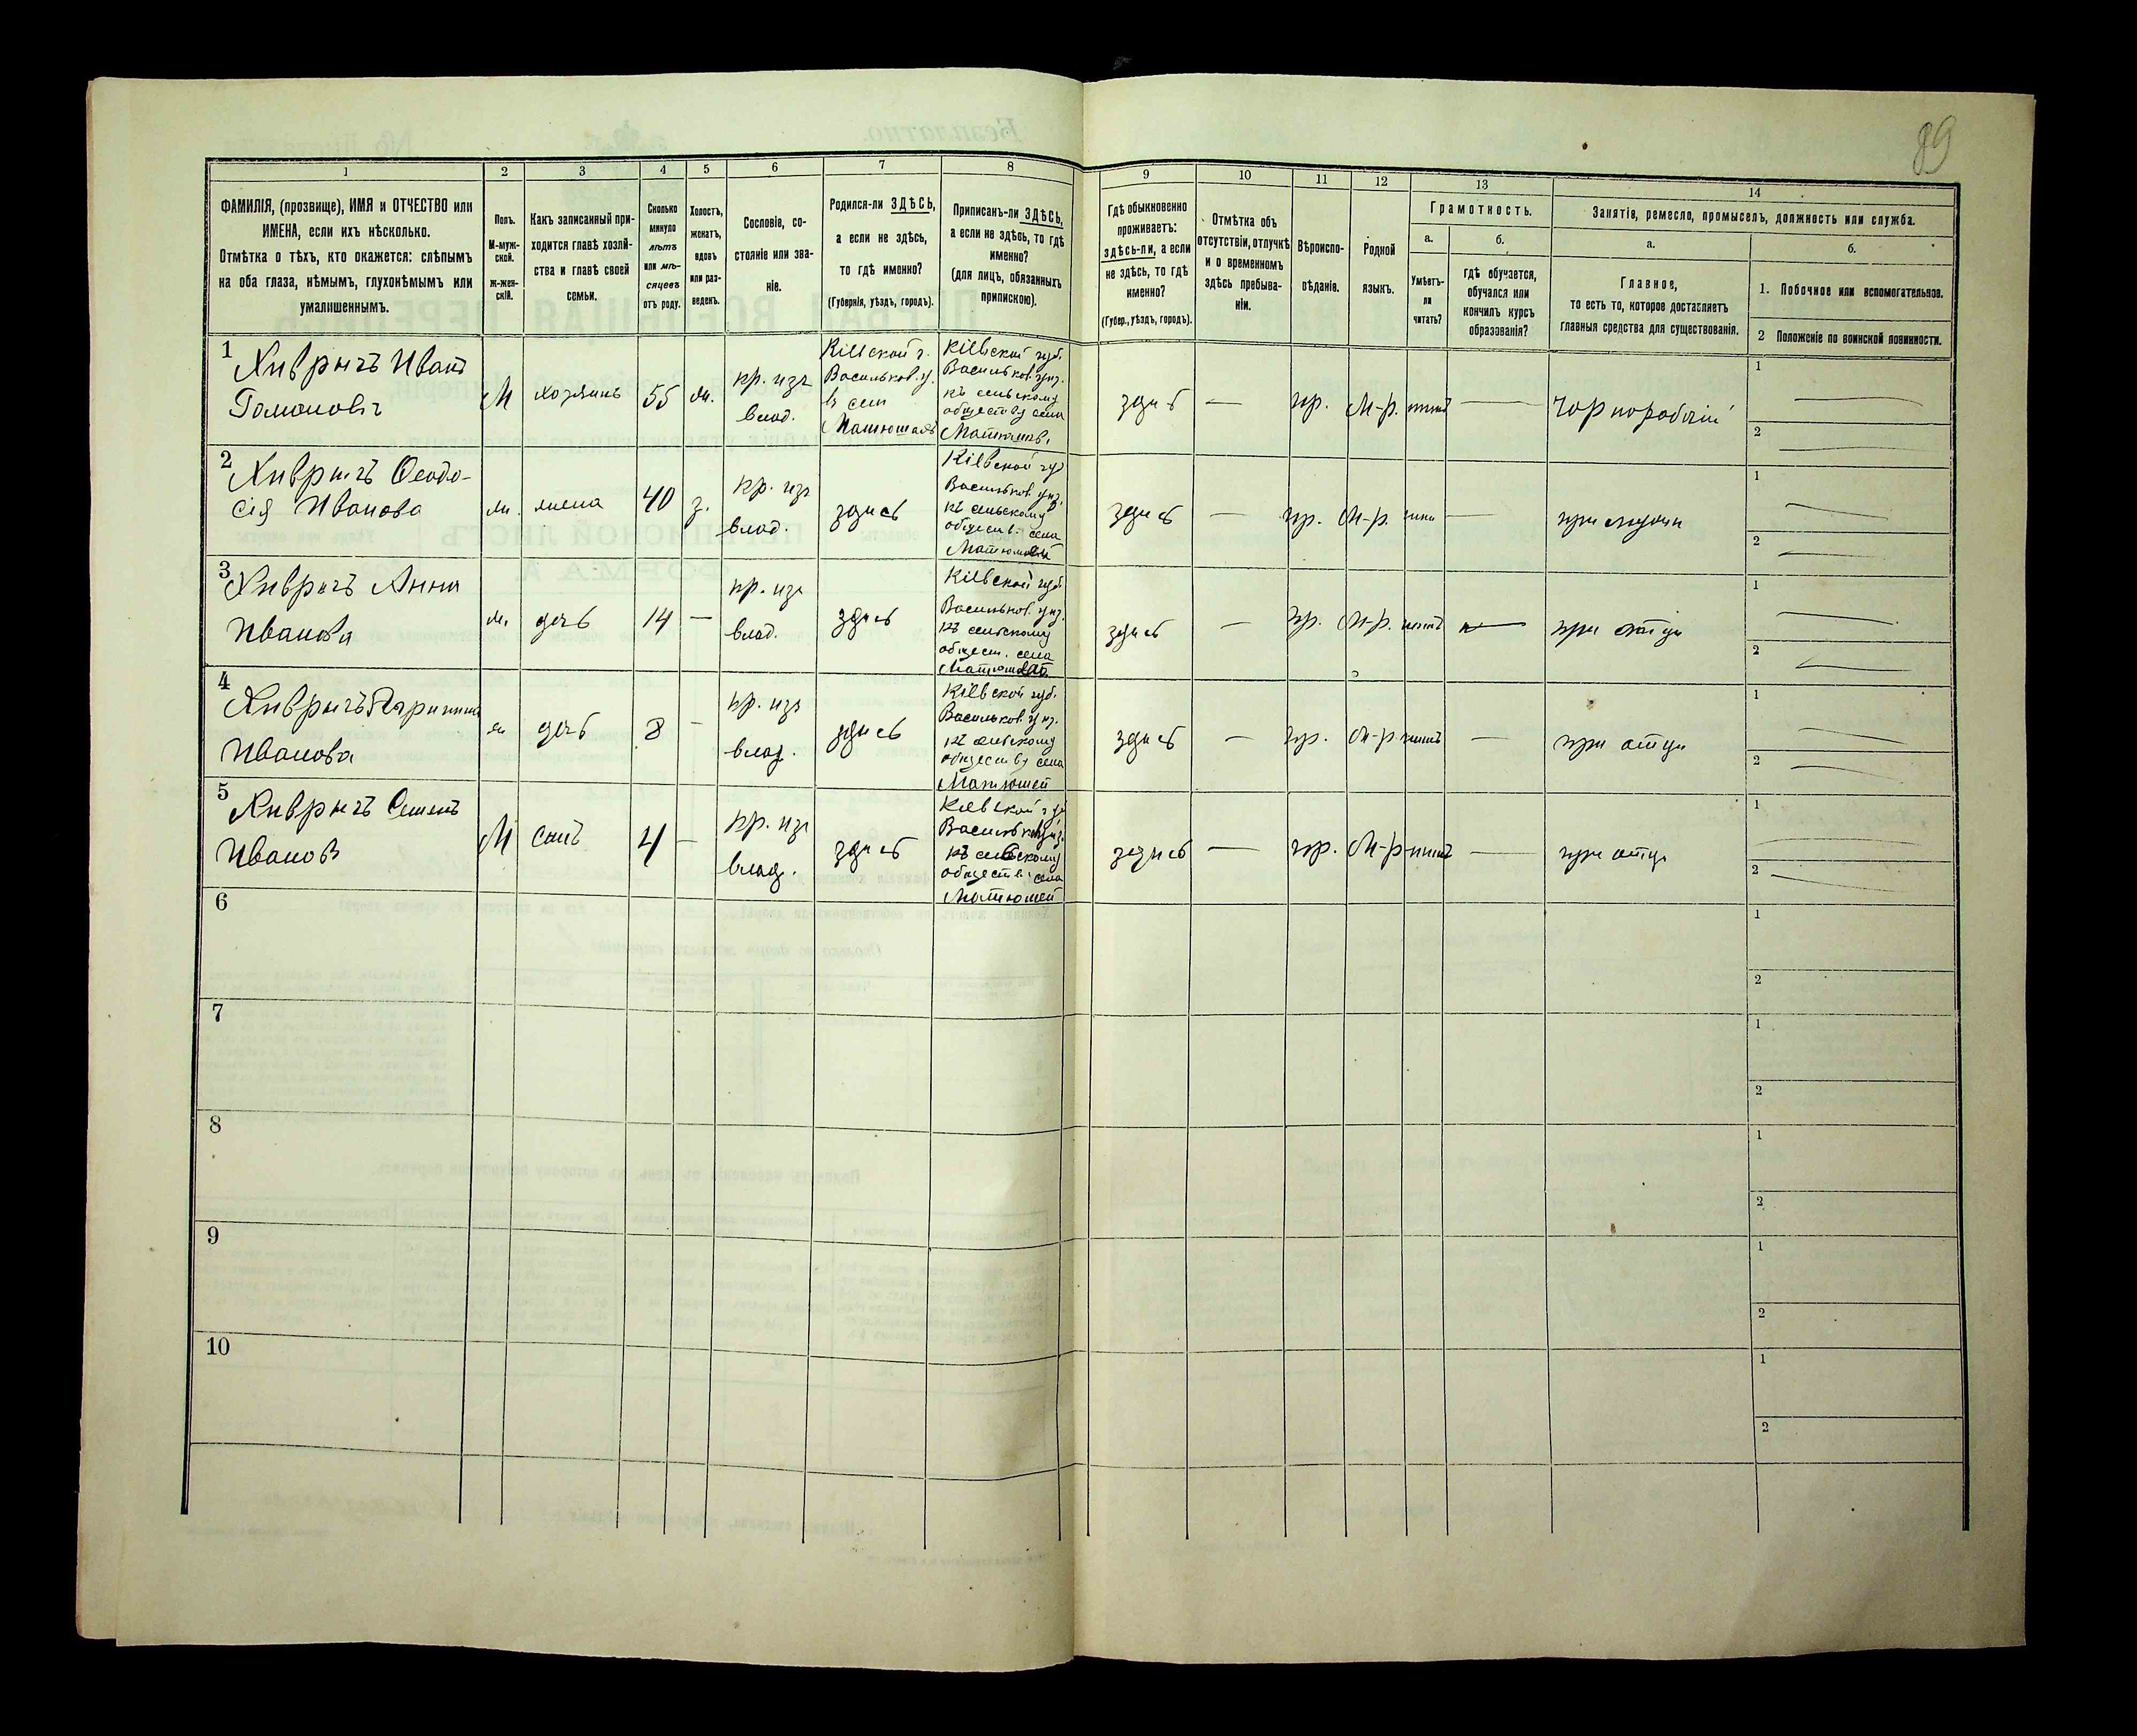 89
1
2
3
4
5
6
7
8
9
10
11
12
13
14
ФАМИЛІЯ, (прозвище), ИМЯ и ОТЧЕСТВО или
ИМЕНА, если ихъ нѣсколько.
Отмѣтка о тѣхъ, кто окажется: слѣпымъ
на оба глаза, нѣмымъ, глухонѣмымъ или
умалишеннымъ.
Полъ.
М-муж-
ской.
Ж-жен-
скій.
Какъ записанный при-
ходится главѣ хозяй-
ства и главѣ своей
семьи.
Сколько
минуло
лѣтъ
или мѣ-
сяцевъ
отъ роду.
Холостъ,
женатъ,
вдовъ
или раз-
веденъ.
Сословіе, со-
стояніе или зва-
ніе.
Родился-ли ЗДѢСЬ,
а если не здѣсь,
то гдѣ именно?
(Губернія, уѣздъ, городъ).
Приписанъ-ли ЗДѢСЬ,
а если не здѣсь, то гдѣ
именно?
(для лицъ, обязанныхъ
припискою).
Гдѣ обыкновенно
проживаетъ:
здѣсь-ли, а если
не здѣсь, то гдѣ
именно?
(Губер., уѣздъ, городъ).
Отмѣтка объ
отсутствіи, отлучкѣ
и о временномъ
здѣсь пребыва-
ніи.
Вѣроиспо-
вѣданіе.
Родной
языкъ.
Грамотность.
а.
Умѣетъ-
ли
читать?
б.
гдѣ обучается,
обучался или
кончилъ курсъ
образованія?
Занятіе, ремесло, промыселъ, должность или служба.
а.
Главное,
то есть то, которое доставляетъ
главныя средства для существованія.
б.
1. Побочное или вспомогательное.
2 Положеніе по воинской повинности.
1
Хиврычъ Иванъ
М
хозяинъ
55
ж.
кр. изъ
влад.
Кіевской г.
Васильков. у.
в селі
Кіевской губ.
Васильков. уѣз.
къ сельскому
обществу села
здись
—
пр.
М-р.
—
чорнорабочій
1
2
2
Хиврычъ Ѳеодо-
сія Иванова
ж.
жена
40
з.
кр. изъ
влад.
здись
Кіевской губ.
Васильков. уѣз.
къ сельскому
обществ. села
здись
—
пр.
М-р.
—
1
2
3
Хиврычъ Анна
Иванова
ж.
дочь
14
—
кр. изъ
влад.
здись
Кіевской губ.
Васильков. уѣз.
къ сельскому
общест. села
здись
—
пр.
М-р.
при отци
1
2
4
Хиврычъ
Иванова
ж
дочь
8
—
кр. изъ
влад.
здись
Кіевской губ.
Васильков. уѣз.
къ сельскому
обществу села
Матюшей
здись
—
пр.
М-р.
—
при отци
1
2
5
Хиврычъ Семенъ
Ивановъ
М
сынъ
4
—
кр. изъ
влад.
здись
Кіевской губ.
къ сельскому
обществ. села
Матюшей
здись
—
пр.
М-р
—
при отци
1
2
6
1
2
7
1
2
8
1
2
9
1
2
10
1
2